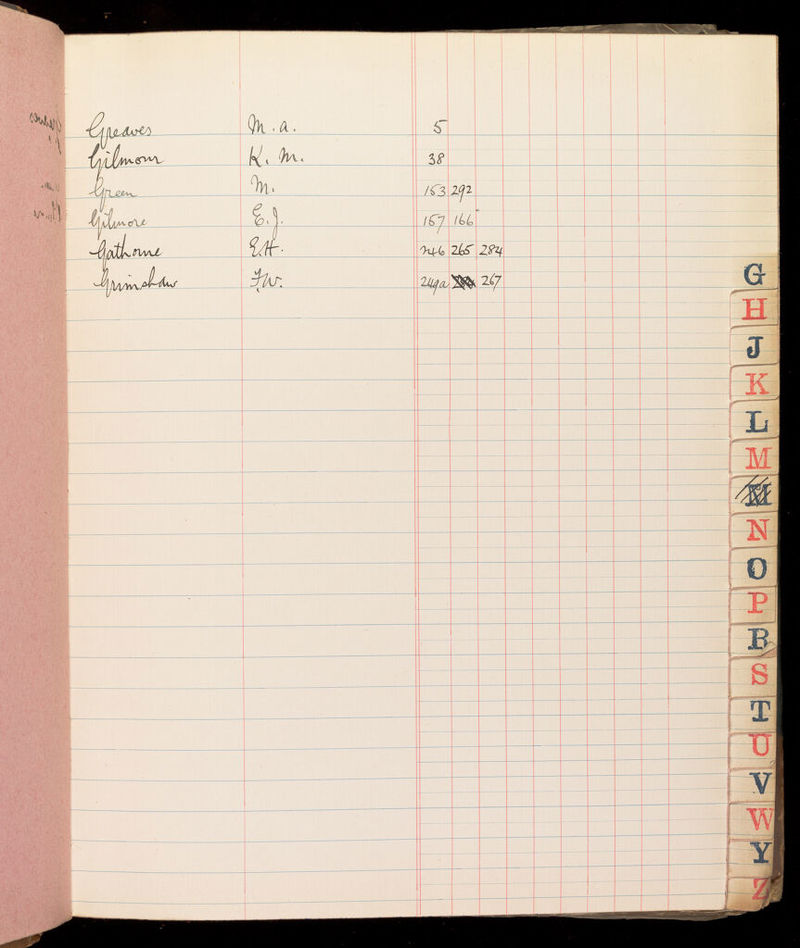 Greaves M. A. 5
Gilmour K. M. 38
Green M. 153 292
Gilmore E. J. 157 166
Gathorne E.H. 246 265 284
Grimshaw F.W. 249a 267
G
H
J
K
L
M
M
N
O
P
R
S
T
U
V
W
Y
Z